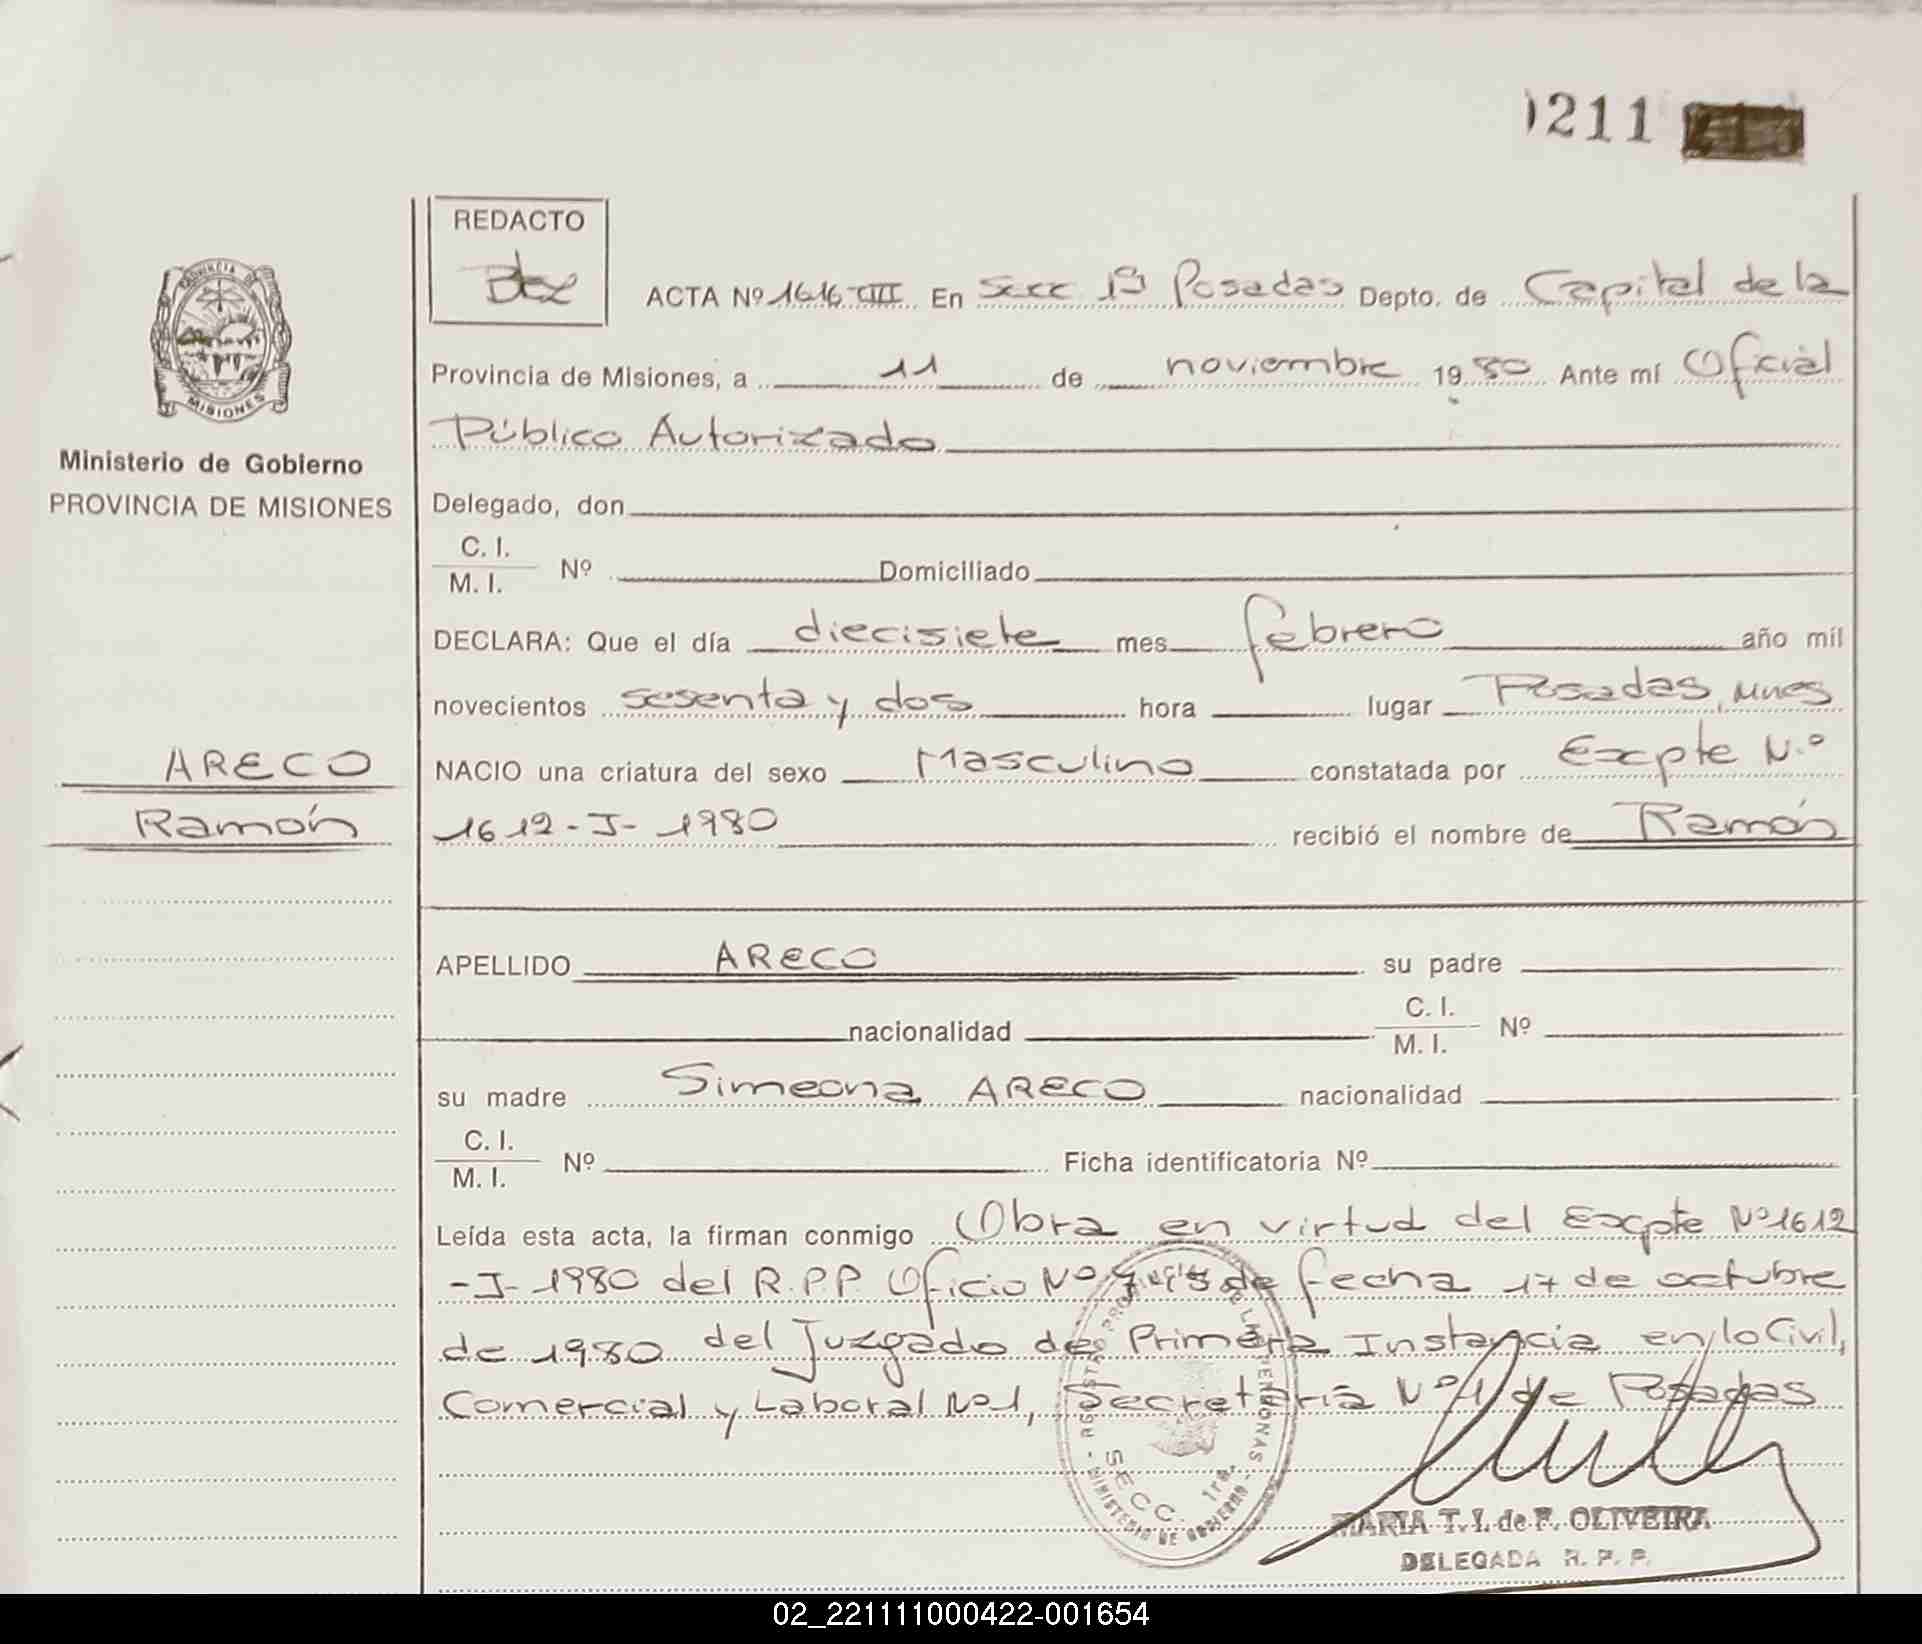 0211
REDACTO
ACTA Nº 1616-CIII En Secc 1ª Posadas Depto. de Capital de la
PROVINCIA DE
MISIONES
Provincia de Misiones, a 11 de noviembre 1980 Ante mí Oficial
Público Autorizado
Ministerio de Gobierno
PROVINCIA DE MISIONES
Delegado, don
C. I.
M. I. Nº Domiciliado
DECLARA: Que el día diecisiete mes febrero año mil
novecientos sesenta y dos hora lugar Posadas, Mnes
ARECO
NACIO una criatura del sexo Masculino constatada por Excpte N.º
Ramón
1612-I-1980 recibió el nombre de Ramón
APELLIDO ARECO su padre
nacionalidad C. I.
M. I. Nº
su madre Simeona ARECO nacionalidad
C. I.
M. I. Nº Ficha identificatoria Nº
Leída esta acta, la firman conmigo Obra en virtud del Excpte Nº1612
-I-1980 del R.P.P. Oficio Nº de fecha 17 de octubre
de 1980 del Juzgado de Primera Instancia en lo Civil,
Comercial y Laboral Nº1, Secretaría Nº1 de Posadas
REGISTRO PROVINCIAL DE LAS PERSONAS
SECC. 1ra.
- MINISTERIO DE GOBIERNO -
MARIA T. I. de F. OLIVEIRA
DELEGADA R. P. P.
02_221111000422-001654